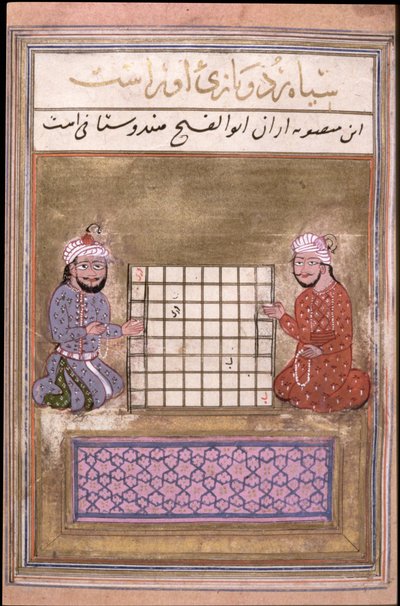 سیاه بُرد و بازی اوراست
این منصوبه ازان ابوالفتح هندوستانی است